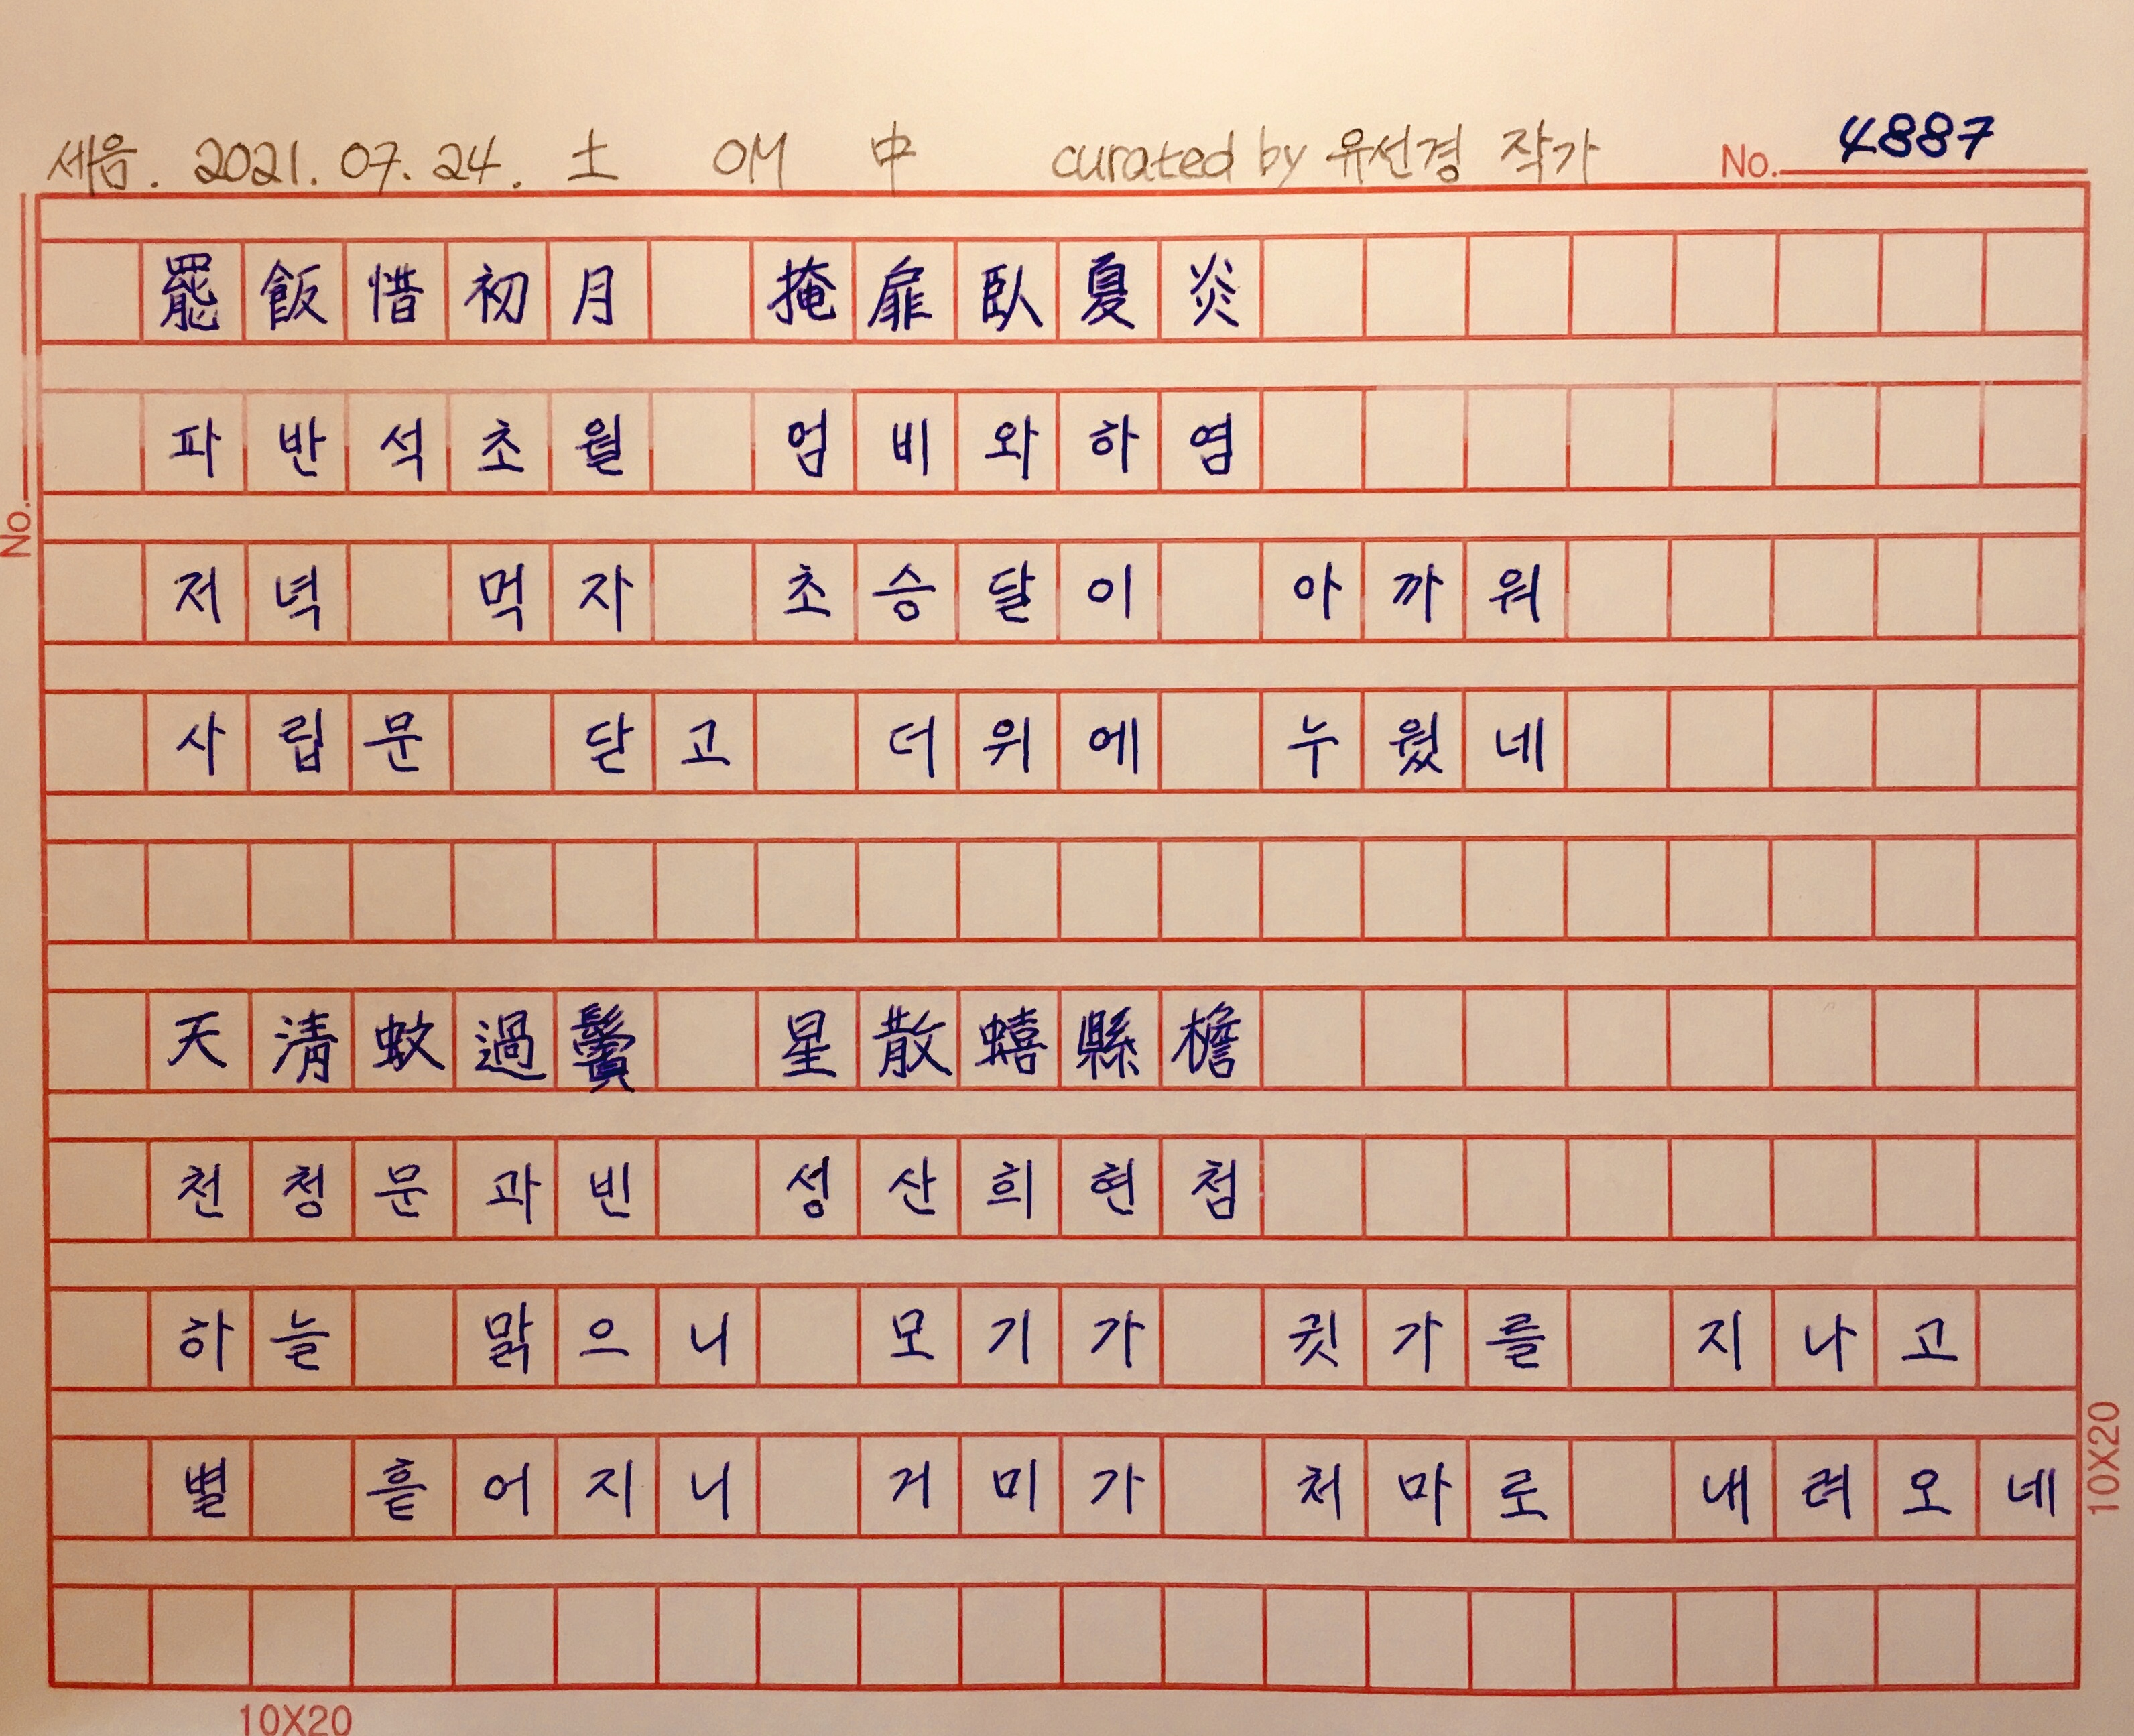 세음. 2021. 07. 24. 土 OM 中 curated by 유선경 작가 No. 4887
罷飯惜初月 掩扉臥夏炎
파반석초월 엄비와하염
저녁 먹자 초승달이 아까워
사립문 닫고 더위에 누웠네
天淸蚊過鬢 星散蟢縣檐
천청문과빈 성산희현첨
하늘 맑으니 모기가 귓가를 지나고
별 흩어지니 거미가 처마로 내려오네
No.
10X20
10X20